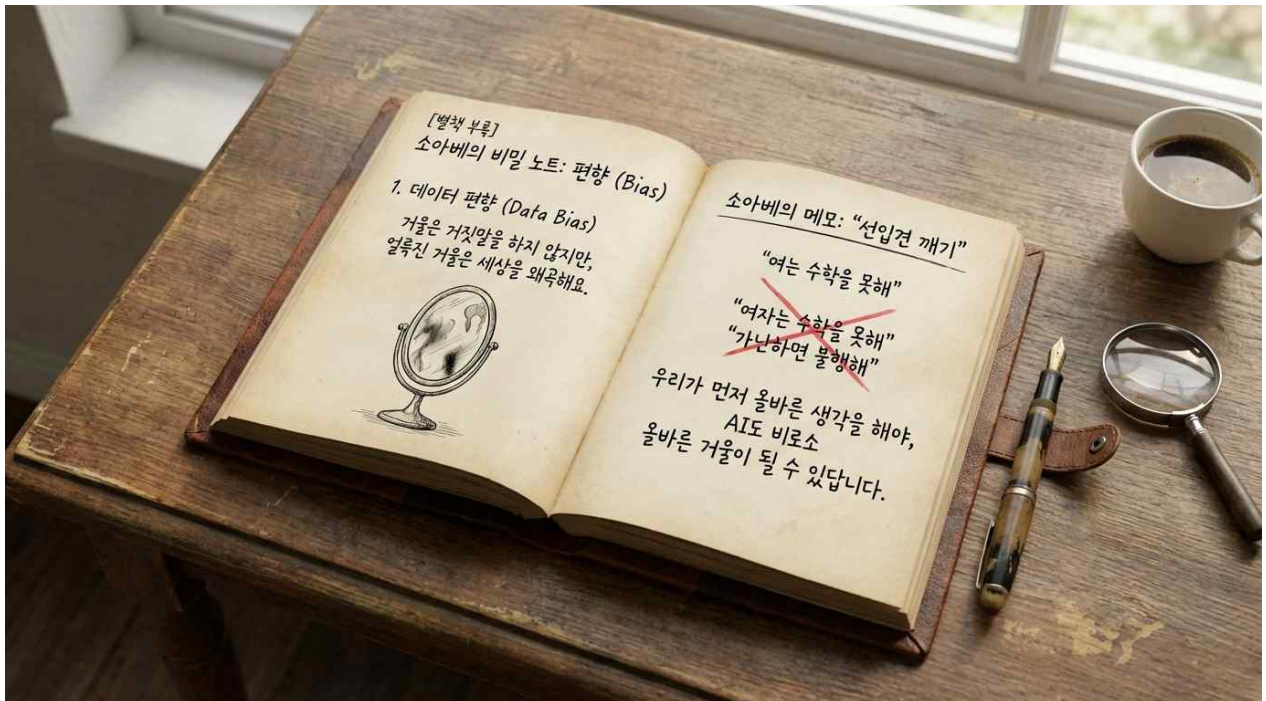 [별책 부록]
소아베의 비밀 노트: 편향 (Bias)
1. 데이터 편향 (Data Bias)
거울은 거짓말을 하지 않지만,
얼룩진 거울은 세상을 왜곡해요.
소아베의 메모: “선입견 깨기”
“여는 수학을 못해”
“여자는 수학을 못해”
“가난하면 불행해”
우리가 먼저 올바른 생각을 해야,
AI도 비로소
올바른 거울이 될 수 있답니다.